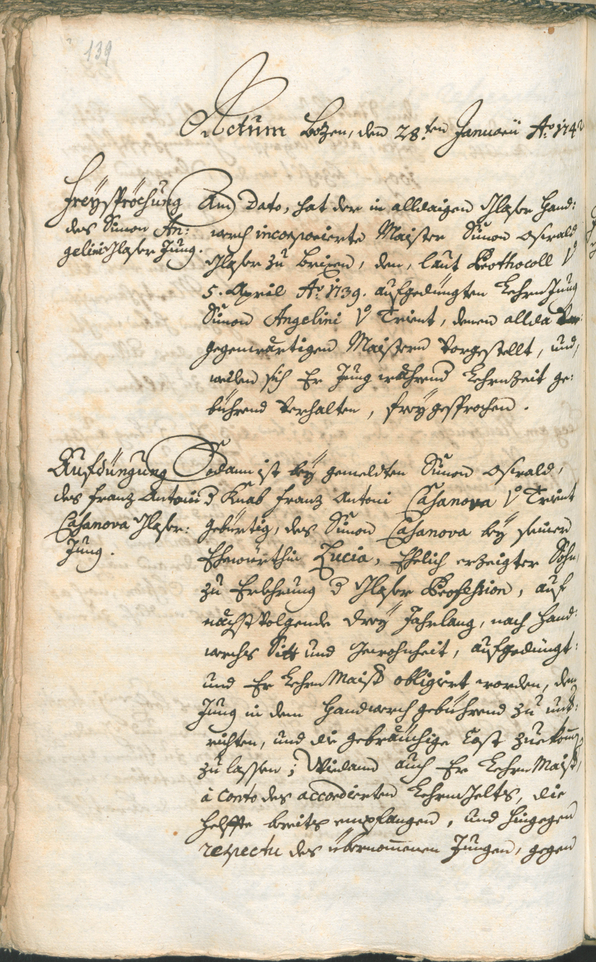 139
Actum Bozen, den 28.ten Januarii Ao: 174
Freyspröchung
des Simon An:
gelini Glaser Jung.
Am Dato, hat der in alldaigen Glaser Hand:
werch incorporierte Maister Simon Oswald
Glaser zu Brixen, den, laut Prothocoll
5. April Ao: 1739. aufgedüngten Lehrn Jung
Simon Angelini Trient, denen allda
gegenwärtigen Maistern Vorgestellt, und,
weilen sich Er Jung während Lehrnzeit ge:
bührend verhalten, freygesprochen.
Aufdüngung
des Franz Antoni
Casanova Glaser:
Jung.
Sodann ist bey gemeldten Simon Oswald,
Knab Franz Antoni Casanova Trient
gebürtig, des Simon Casanova bey seinen
Ehewürthin Lucia, Ehelich erzeigter Sohn
zu Erlehrnung Glaser Profession, auf
nächst Volgende drey Jahrlang, nach Hand:
werchs Sitt und Gewohnheit, aufgedüngt,
und Er Lehrn Maister obligiert worden, den
Jung in dem Handwerch gebührend zu unt:
richten, und die gebräuchige Cost zuekom
zu lassen; Wieland auch Er Lehrn Maist
à conto des accordierten Lehrn Gelts, die
Helffte bereits empfangen, und hingegen
respectu des übernomenen Jungen, gegen